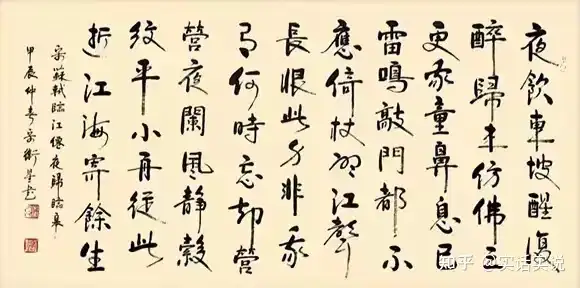 夜飲東坡醒復
醉歸来仿佛三
更家童鼻息已
雷鳴敲門都不
應倚杖聽江聲
長恨此身非我
有何時忘却營
營夜闌風静縠
紋平小舟從此
逝江海寄餘生
宋蘇軾臨江僊夜歸臨皋
甲辰仲春
知乎 @实话实说